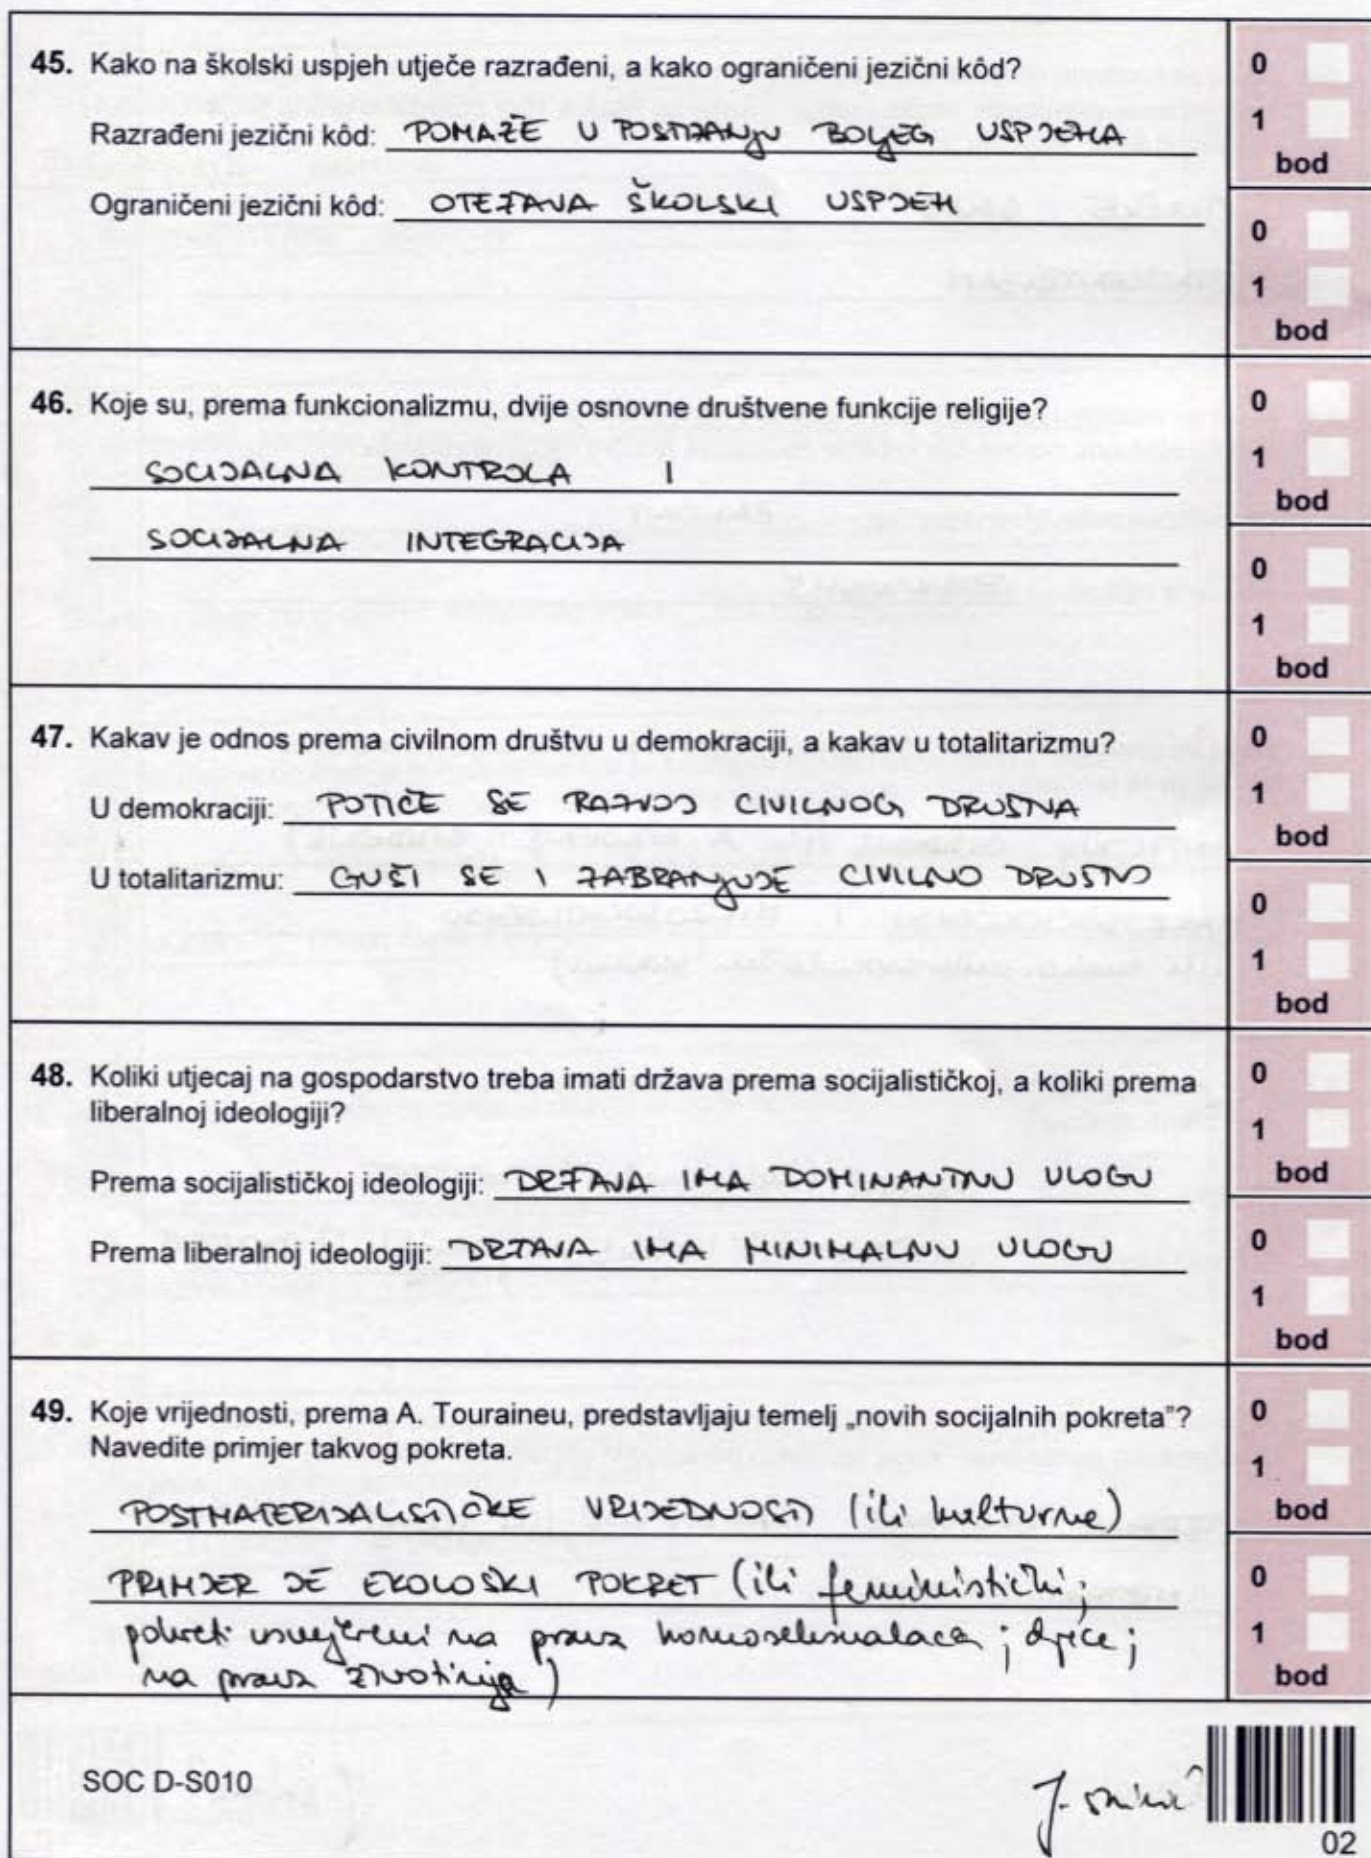 45. Kako na školski uspjeh utječe razrađeni, a kako ograničeni jezični kôd?
0
Razrađeni jezični kôd: POMAŽE U POSTIZANJU BOLJEG USPJEHA
1
bod
Ograničeni jezični kôd: OTEŽAVA ŠKOLSKI USPJEH
0
1
bod
46. Koje su, prema funkcionalizmu, dvije osnovne društvene funkcije religije?
0
SOCIJALNA KONTROLA I
1
bod
SOCIJALNA INTEGRACIJA
0
1
bod
47. Kakav je odnos prema civilnom društvu u demokraciji, a kakav u totalitarizmu?
0
U demokraciji: POTIČE SE RAZVOJ CIVILNOG DRUŠTVA
1
bod
U totalitarizmu: GUŠI SE I ZABRANJUJE CIVILNO DRUŠTVO
0
1
bod
48. Koliki utjecaj na gospodarstvo treba imati država prema socijalističkoj, a koliki prema
liberalnoj ideologiji?
0
1
Prema socijalističkoj ideologiji: DRŽAVA IMA DOMINANTNU ULOGU
bod
Prema liberalnoj ideologiji: DRŽAVA IMA MINIMALNU ULOGU
0
1
bod
49. Koje vrijednosti, prema A. Touraineu, predstavljaju temelj „novih socijalnih pokreta”?
Navedite primjer takvog pokreta.
0
1
POSTMATERIJALISTIČKE VRIJEDNOSTI (ili kulturne)
bod
PRIMJER JE EKOLOŠKI POKRET (ili feministički;
0
pokreti usmjereni na prava homoseksualaca; djece;
1
na prava životinja)
bod
SOC D-S010
02